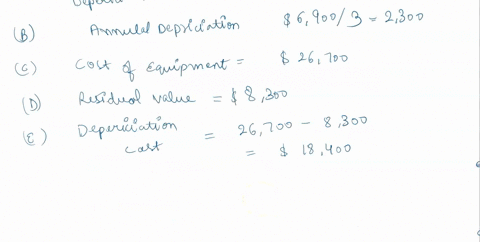 (B) Annual Depriciation $ 6,900/3 = 2,300
(C) Cost of Equipment = $ 26,700
(D) Residual value = $ 8,300
(E) Depericiation cost = 26,700 - 8,300
= $ 18,400